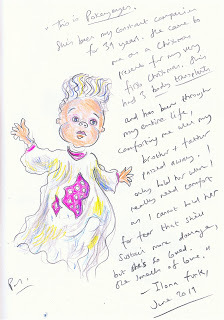 * This is Pokeyeyes.
She's been my constant companion
for 39 years. She came to
me as a Christmas
present for my very
first Christmas, she's
had 3 body transplants
and has been through
my entire life,
comforting me when my
brother & father
passed away. I
only hold her when I
really need comfort
as I cannot hold her
for fear that she'll
sustain more damage,
but she's so loved.
She smells of love."
Ilona
June 2019